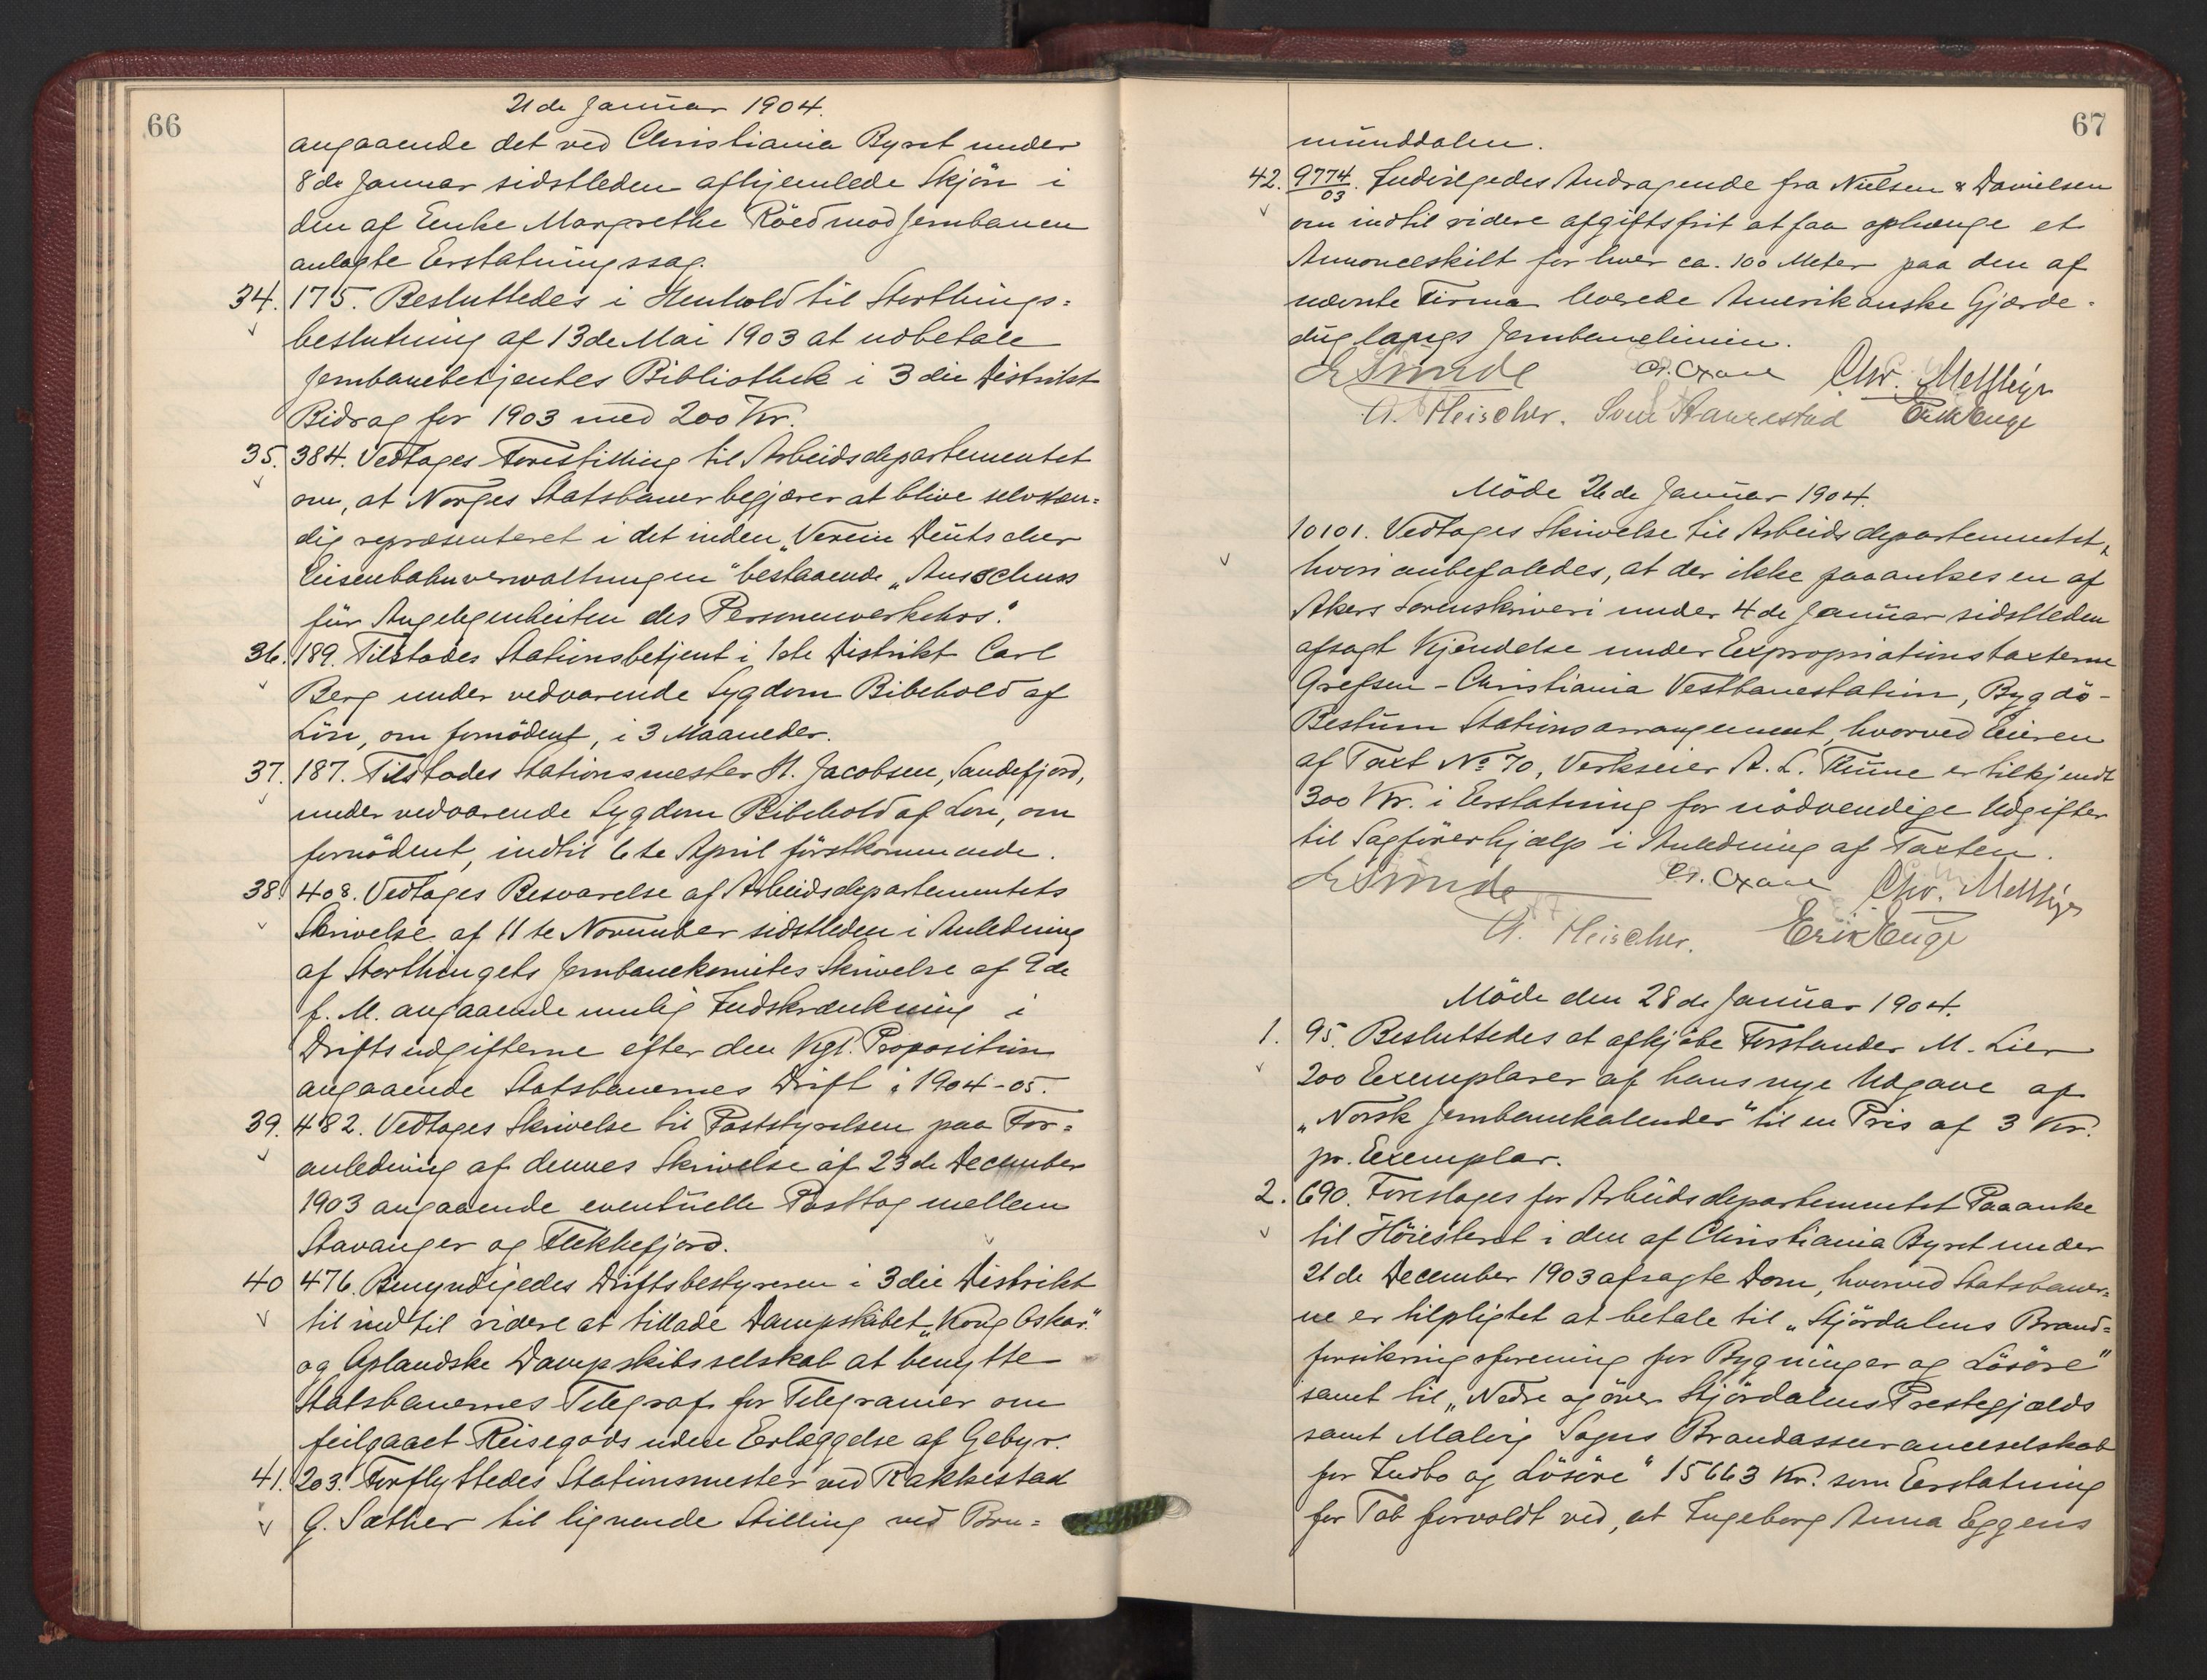 66
21de Januar 1904.
angaaende det ved Christiania Byret under
8de Januar sidstleden afhjemlede Skjön i
den af Enke Margrethe Röed mod Jernbanen
anlagte Erstatningssag.
34. 175. Besluttedes i Henhold til Storthings=
beslutning af 13de Mai 1903 at udbetale
Jernbanebetjentes Bibliothek i 3die Distrikt
Bidrag for 1903 med 200 Kr.
35. 384. Vedtoges Forestilling til Arbeidsdepartementet
om, at Norges Statsbaner begjærer at blive selvstæn=
dig repræsenteret i det inden „Verein Deutscher
Eisenbahnverwaltungen" bestaaende „Ausschuss
für Angelegenheiten des Personenverkehrs".
36. 189. Tilstodes Stationsbetjent i 1ste Distrikt Carl
Berg under vedvarende Sygdom Bibehold af
Lön, om fornödent, i 3 Maaneder.
37. 187. Tilstodes Stationsmester H. Jacobsen, Sandefjord,
under vedvarende Sygdom Bibehold af Lön, om
fornödent, indtil 6te April förstkommende.
38. 408. Vedtoges Besvarelse af Arbeidsdepartementets
Skrivelse af 11te November sidstleden i Anledning
af Storthingets Jernbanekomites Skrivelse af 9de
f. M. angaaende mulig Indskrænkning i
Driftsudgifterne efter den Kgl. Proposition
angaaende Statsbanernes Drift i 1904-05.
39. 482. Vedtoges Skrivelse til Poststyrelsen paa For=
anledning af dennes Skrivelse af 23de December
1903 angaaende eventuelle Posttog mellem
Stavanger og Flekkefjord.
40 476. Bemyndigedes Driftsbestyreren i 3die Distrikt
til indtil videre at tillade Dampskibet „Kong Oskar"
og Oplandske Dampskibsselskab at benytte
Statsbanernes Telegraf for Telegramer om
feilgaaet Reisegods uden Erlæggelse af Gebyr.
41. 203. Forflyttedes Stationsmester ved Rakkestad
G. Sæther til lignende Stilling ved Bru=
67
munddalen.
42. 9774/03. Indvilgedes Andragende fra Nielsen & Danielsen
om indtil videre afgiftsfrit at faa ophænge et
Annonceskilt for hver ca. 100 Meter paa den af
nævnte Firma leverede Amerikanske Gjærde=
dug langs Jernbanelinien.
E Sunde Chr. Mellbye
A. Fleischer. Sven Aarrestad Erik Enge
Möde 26de Januar 1904.
10101. Vedtoges Skrivelse til Arbeidsdepartementet,
hvori anbefaledes, at der ikke paaankes en af
Akers Sorenskriveri under 4de Januar sidstleden
afsagt Kjendelse under Expropriationstaxterne
Grefsen-Christiania Vestbanestation, Bygdö-
Bestum Stationsarrangement, hvorved Eieren
af Taxt No 70, Verkseier A. L. Thune er tilkjendt
300 Kr. i Erstatning for nödvendige Udgifter
til Sagförerhjælp i Anledning af Taxten.
E Sunde Chr. Mellbye
A. Fleischer. Erik Enge
Möde den 28de Januar 1904.
1. 95. Besluttedes at afkjöbe Forstander M. Lier
200 Exemplarer af hans nye Udgave af
„Norsk Jernbanekalender" til en Pris af 3 Kr.
pr. Exemplar.
2. 690. Foresloges for Arbeidsdepartementet Paaanke
til Höiesteret i den af Christiania Byret under
21de December 1903 afsagte Dom, hvorved Statsbaner=
ne er tilpligtet at betale til „Stjördalens Brand=
forsikringsforening for Bygninger og Lösöre"
samt til „Nedre og över Stjördalens Prestegjælds
samt Malvig Sogns Brandassuranceselskab
for Indbo og Lösöre" 15663 Kr. som Erstatning
for Tab forvoldt ved, at Ingeborg Anna Eggens